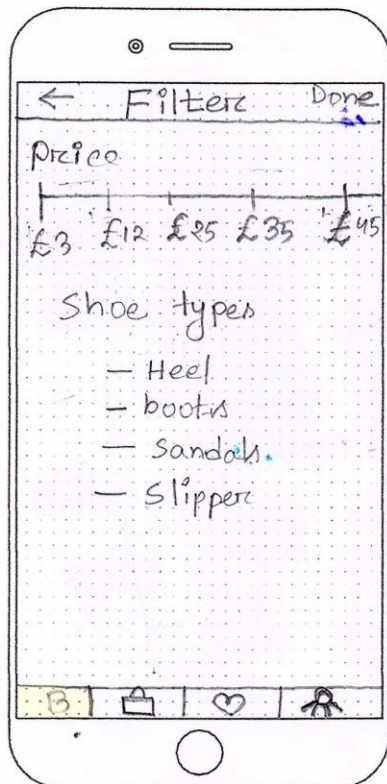 ← Filter Done
Price
£3 £12 £25 £35 £45
Shoe types
— Heel
— boots
— Sandals.
— Slipper
B